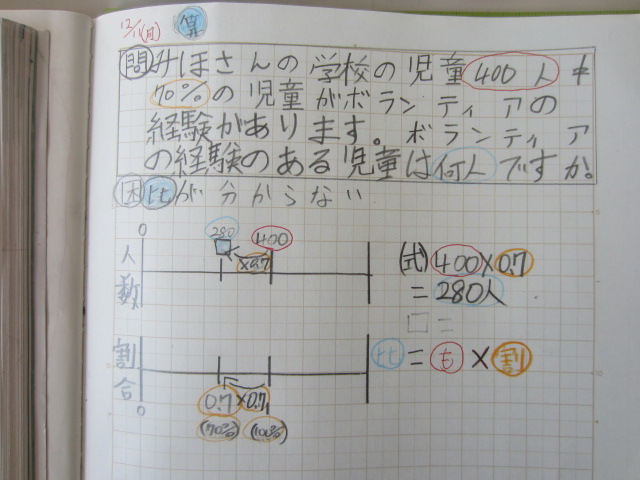 12/11(月) 算
問 みほさんの学校の児童400人中
70%の児童がボランティアの
経験があります。ボランティア
の経験のある児童は何人ですか。
困 比が分からない
0
人数
280
400
×0.7
(式)400×0.7
=280人
□=
割合
0
比=も×割
0.7 ×0.7
(70%) (100%)